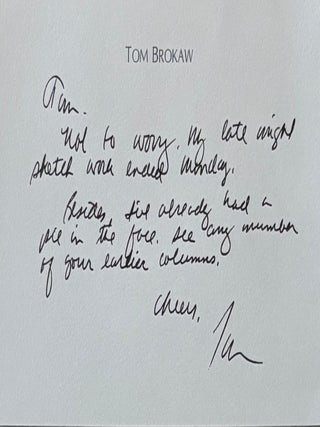 TOM BROKAW
Tom.
Not to worry. My late night
sketch work ended Monday.
Besides, I've already had a
pie in the face. See any number
of your earlier columns.
Cheers,
Tom